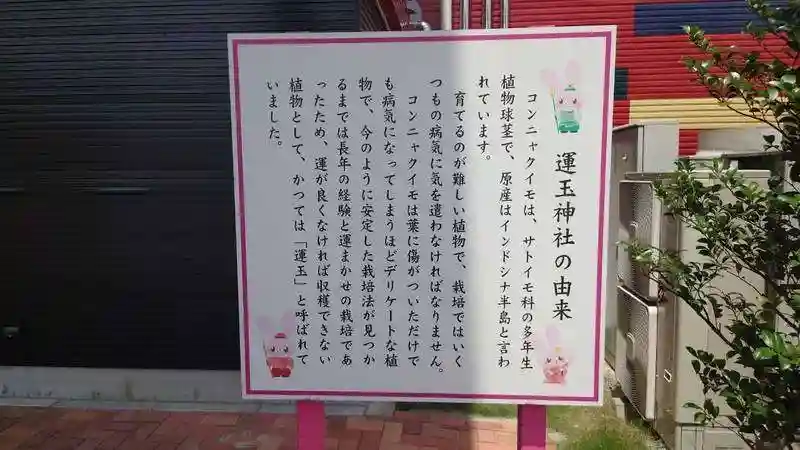 運玉神社の由来
コンニャクイモは、サトイモ科の多年生
植物球茎で、原産はインドシナ半島と言わ
れています。
育てるのが難しい植物で、栽培ではいく
つもの病気に気を遣わなければなりません。
コンニャクイモは葉に傷がついただけで
も病気になってしまうほどデリケートな植
物で、今のように安定した栽培法が見つか
るまでは長年の経験と運まかせの栽培であ
ったため、運が良くなければ収穫できない
植物として、かつては「運玉」と呼ばれて
いました。